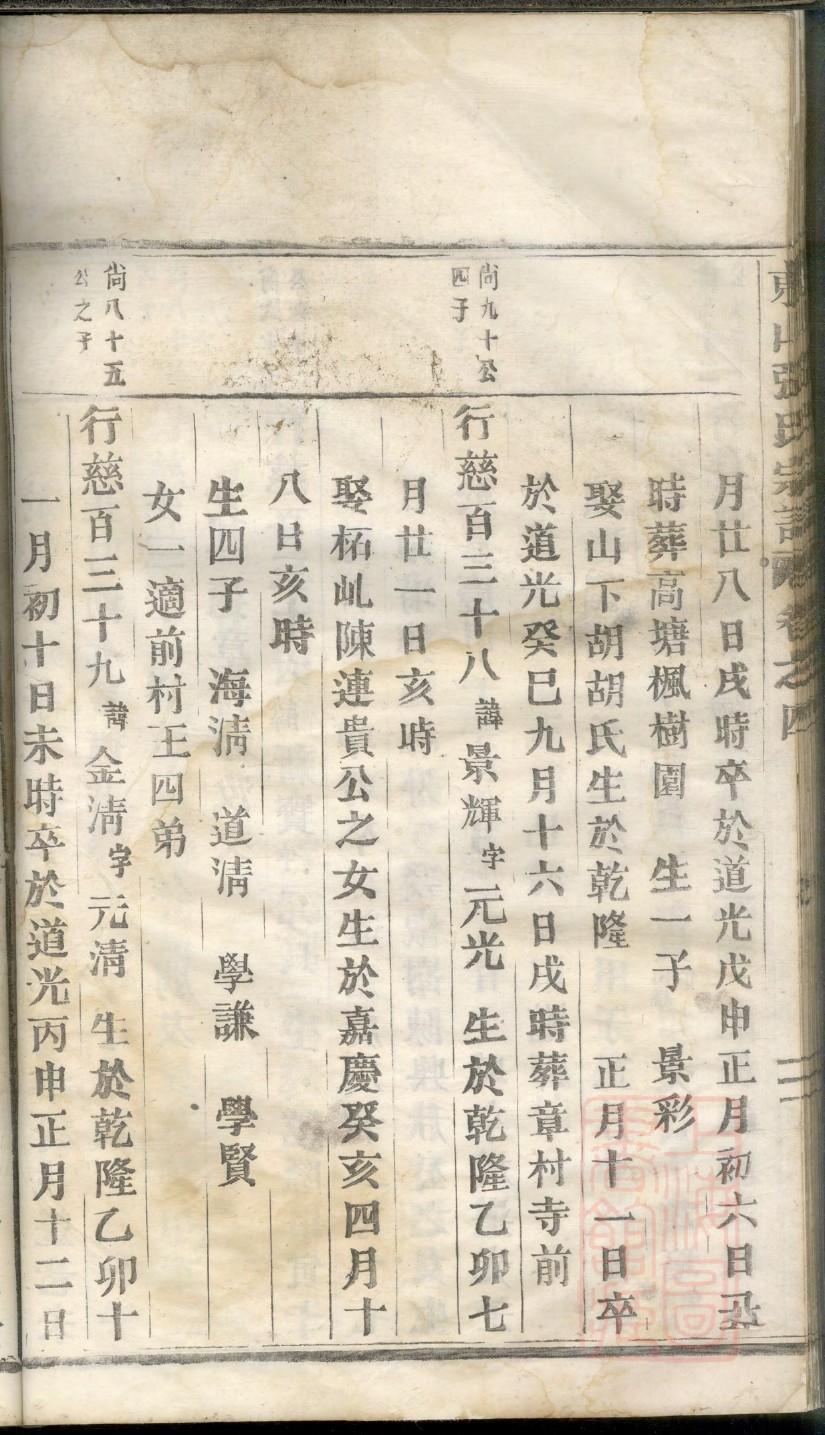 東山張氏宗譜卷之四
月廿八日戌時卒於道光戊申正月初六日丑
時葬高塘楓樹園 生一子 景彩
娶山下胡胡氏生於乾隆 正月十一日卒
於道光癸巳九月十六日戌時葬章村寺前
尙九十公
四子
行慈百三十八 諱 景輝 字 元光 生於乾隆乙卯七
月廿一日亥時
娶柘虬陳連貴公之女生於嘉慶癸亥四月十
八日亥時
生四子 海淸 道淸 學謙 學賢
女一適前村王四弟
尙八十五
公之子
行慈百三十九 諱 金淸 字 元淸 生於乾隆乙卯十
一月初十日未時卒於道光丙申正月十二日